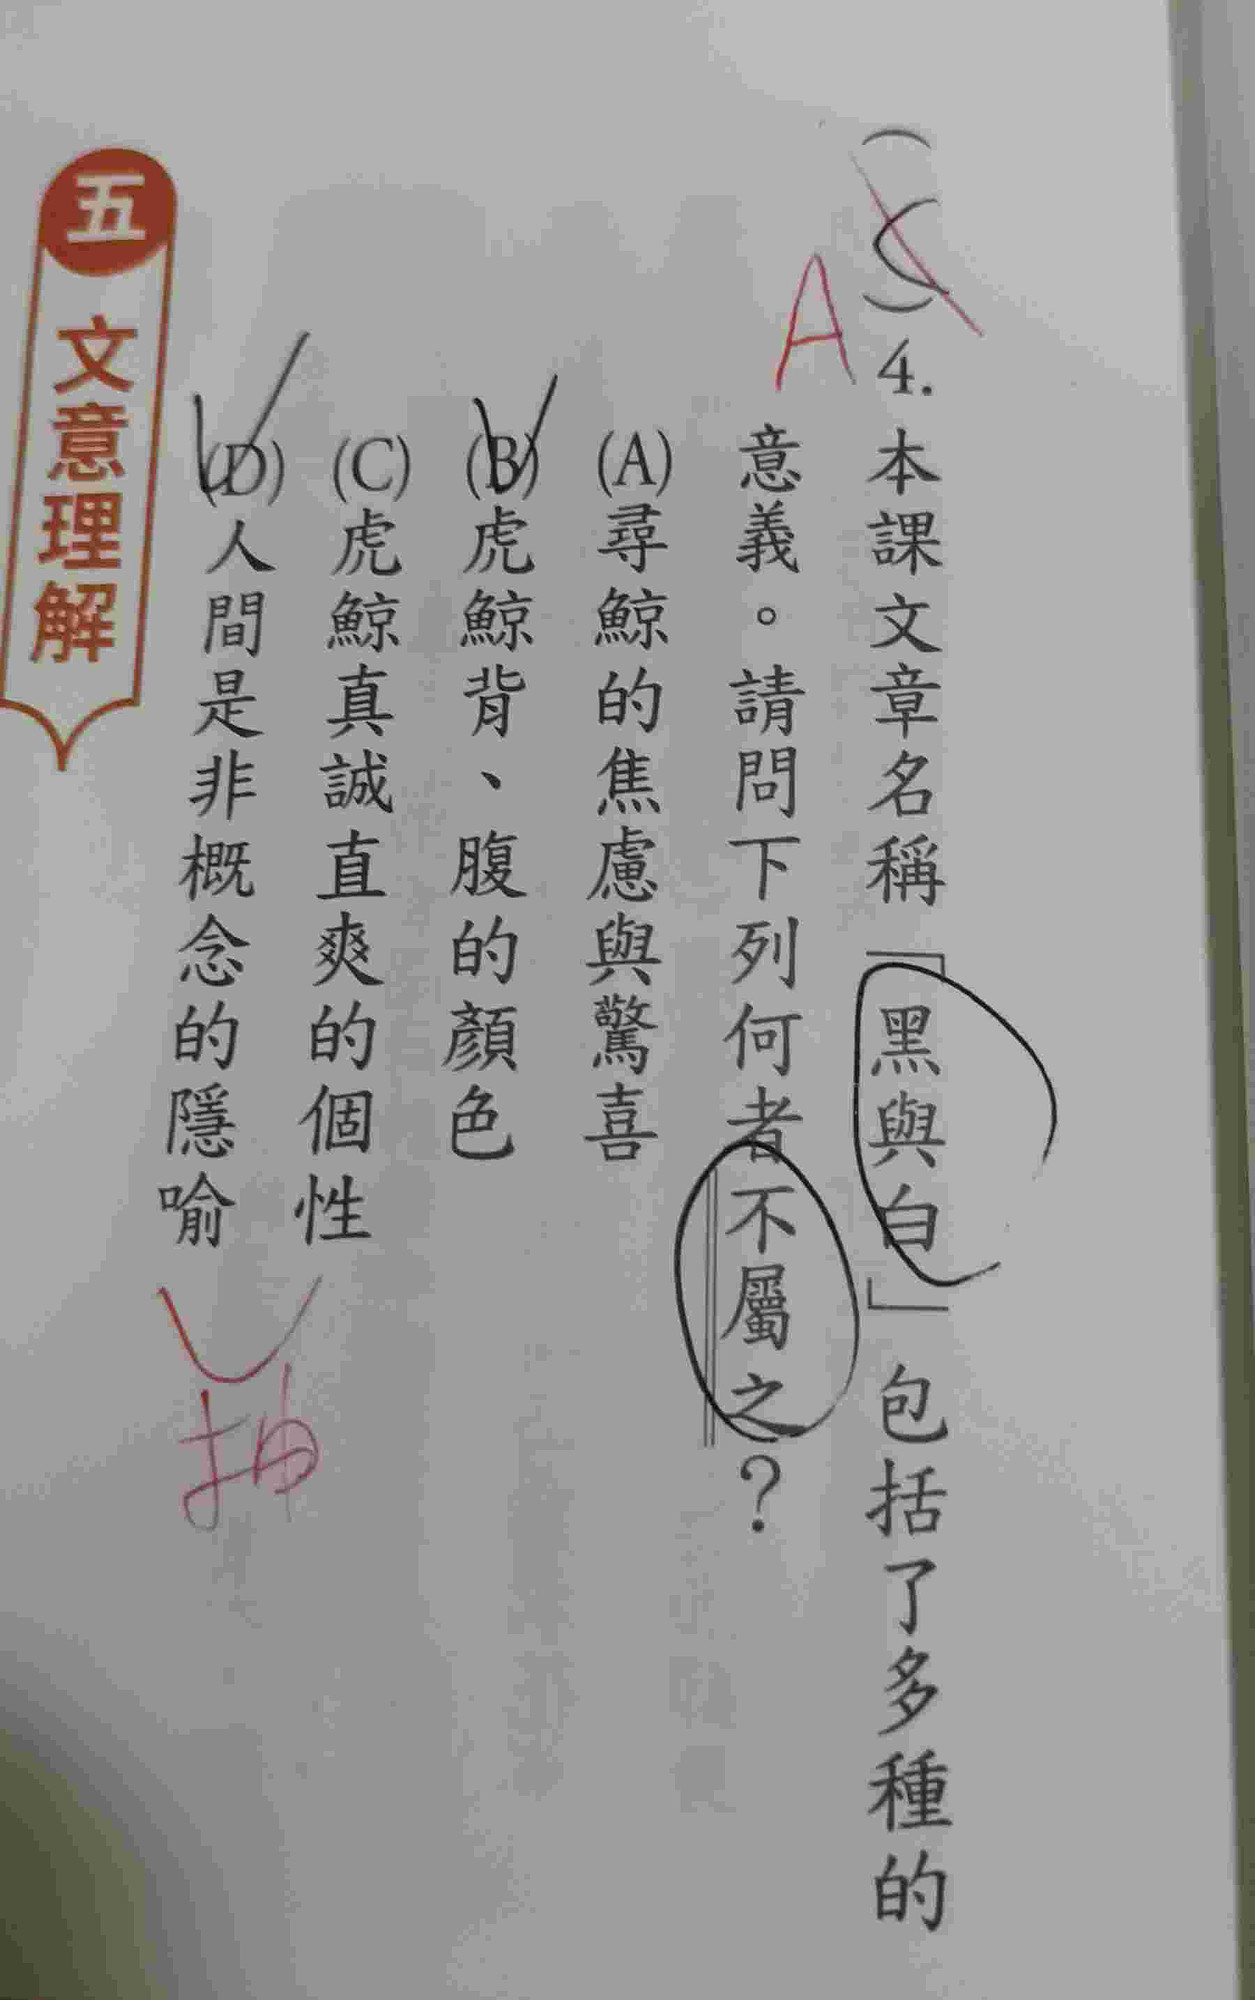 (C)4.本課文章名稱「黑與白」包括了多種的
意義。請問下列何者不屬之？
A
(A)尋鯨的焦慮與驚喜
(B)虎鯨背、腹的顏色
(C)虎鯨真誠直爽的個性
(D)人間是非概念的隱喻
五 文意理解